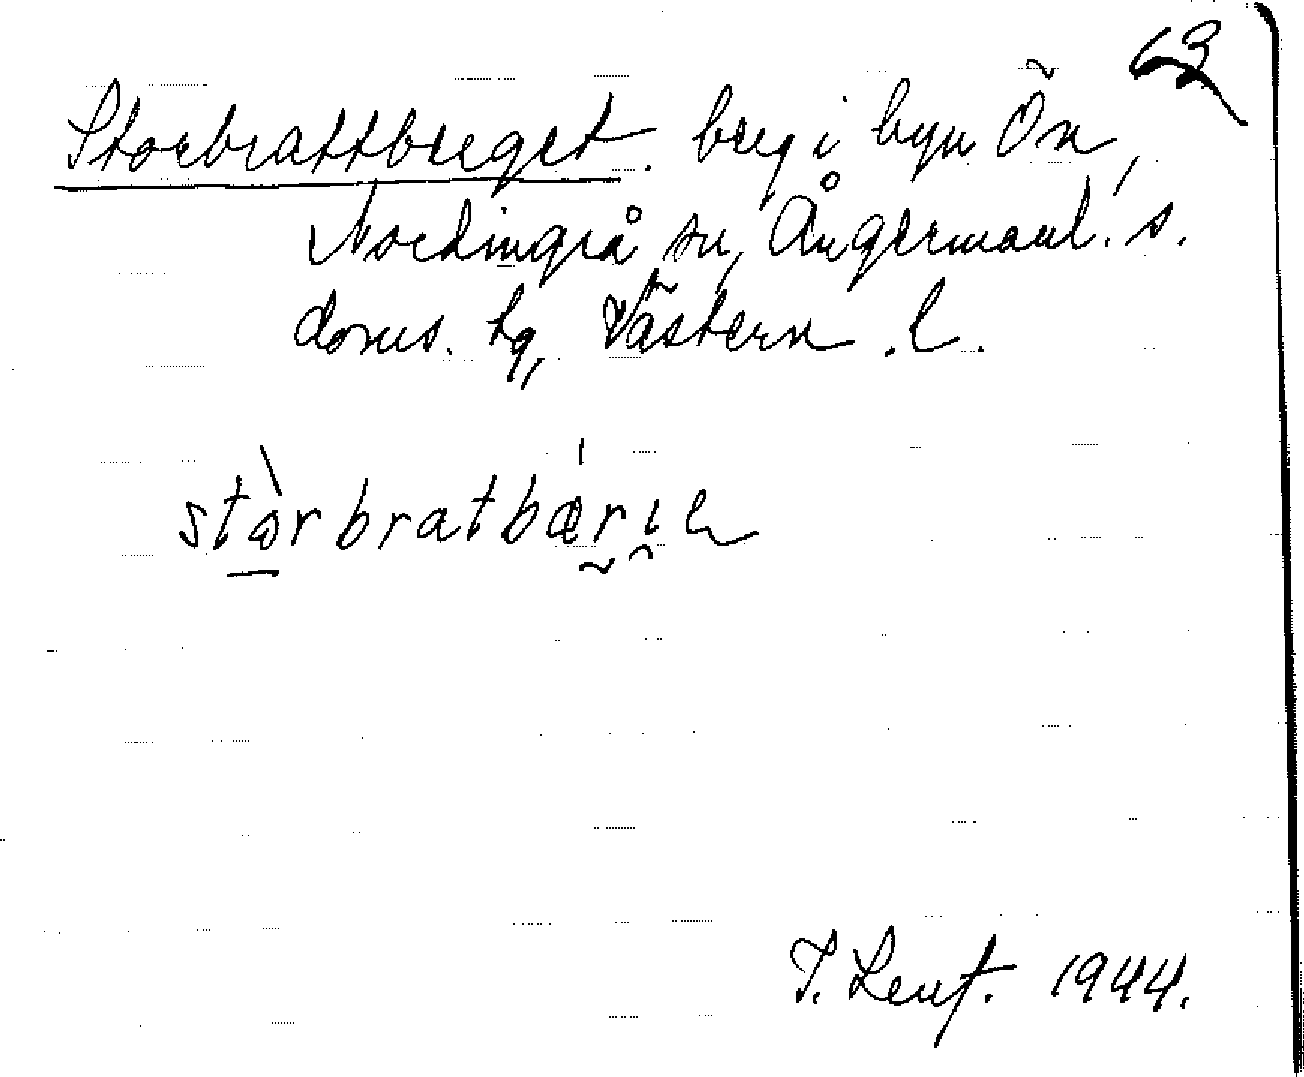 63
Storbrattberget. berg i byn Ön,
Nordingrå sn, Ångermanl. s.
doms. tg, Västern. l.
stòrbratbæ̀rıe
T. Lenf. 1944.